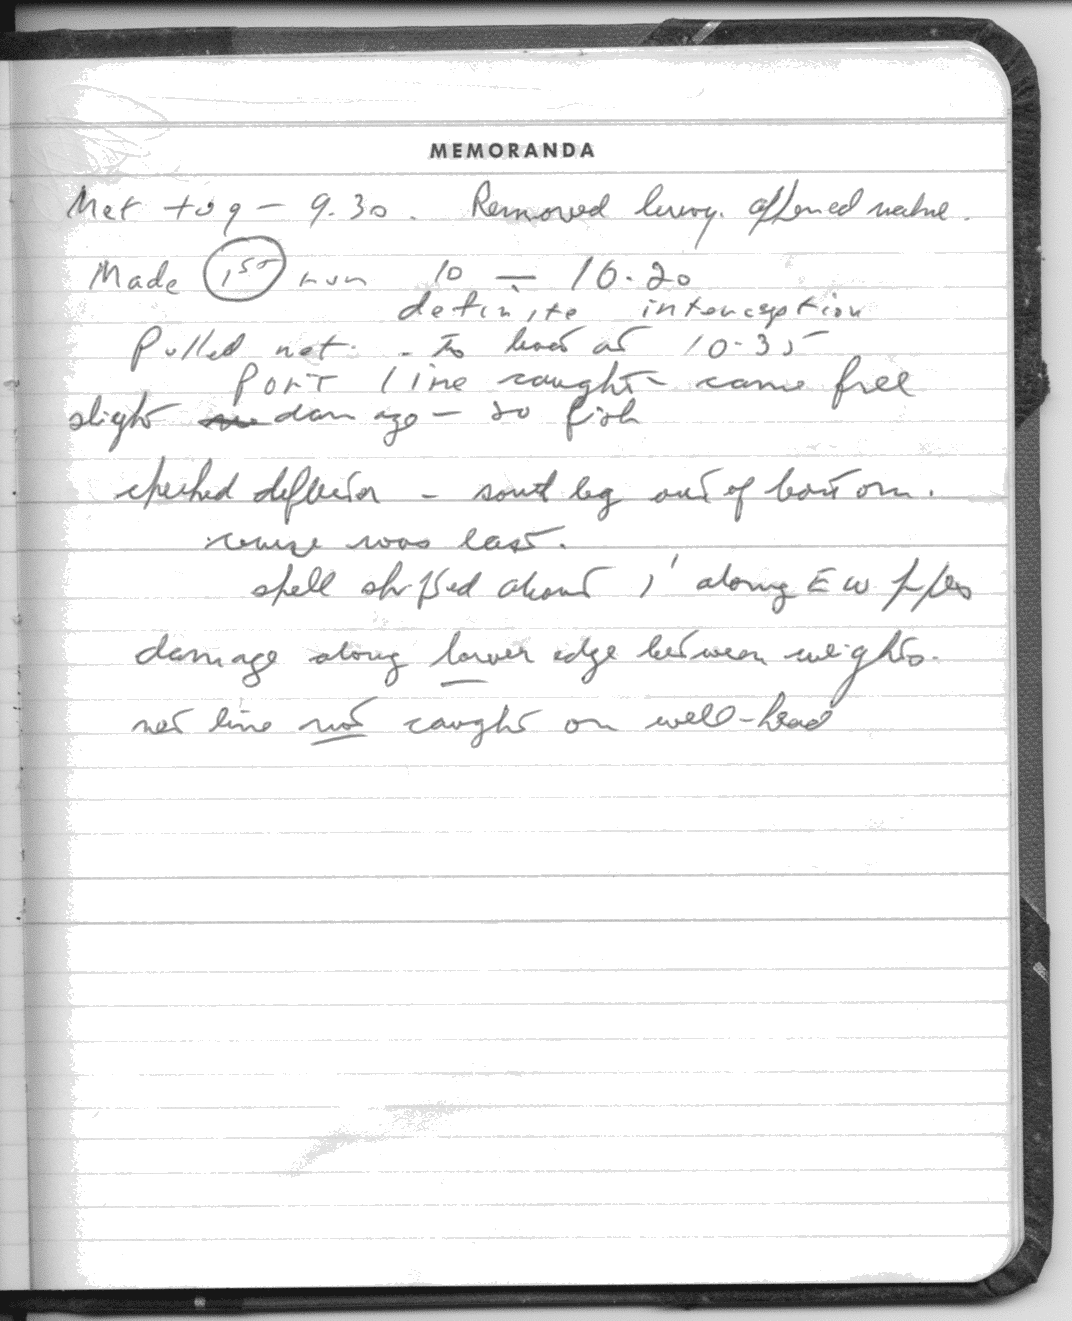 MEMORANDA
Met tug - 9.30. Removed buoy. opened valve.
Made 1st run 10 - 10.20
definite interception
Pulled net. - To boat at 10.35
Port line caught - came free
slight damage - 20 fish
checked deflector - south leg out of bottom.
course was east.
shell shifted about 1' along E W pipes
damage along lower edge between weights.
net line not caught on well-head